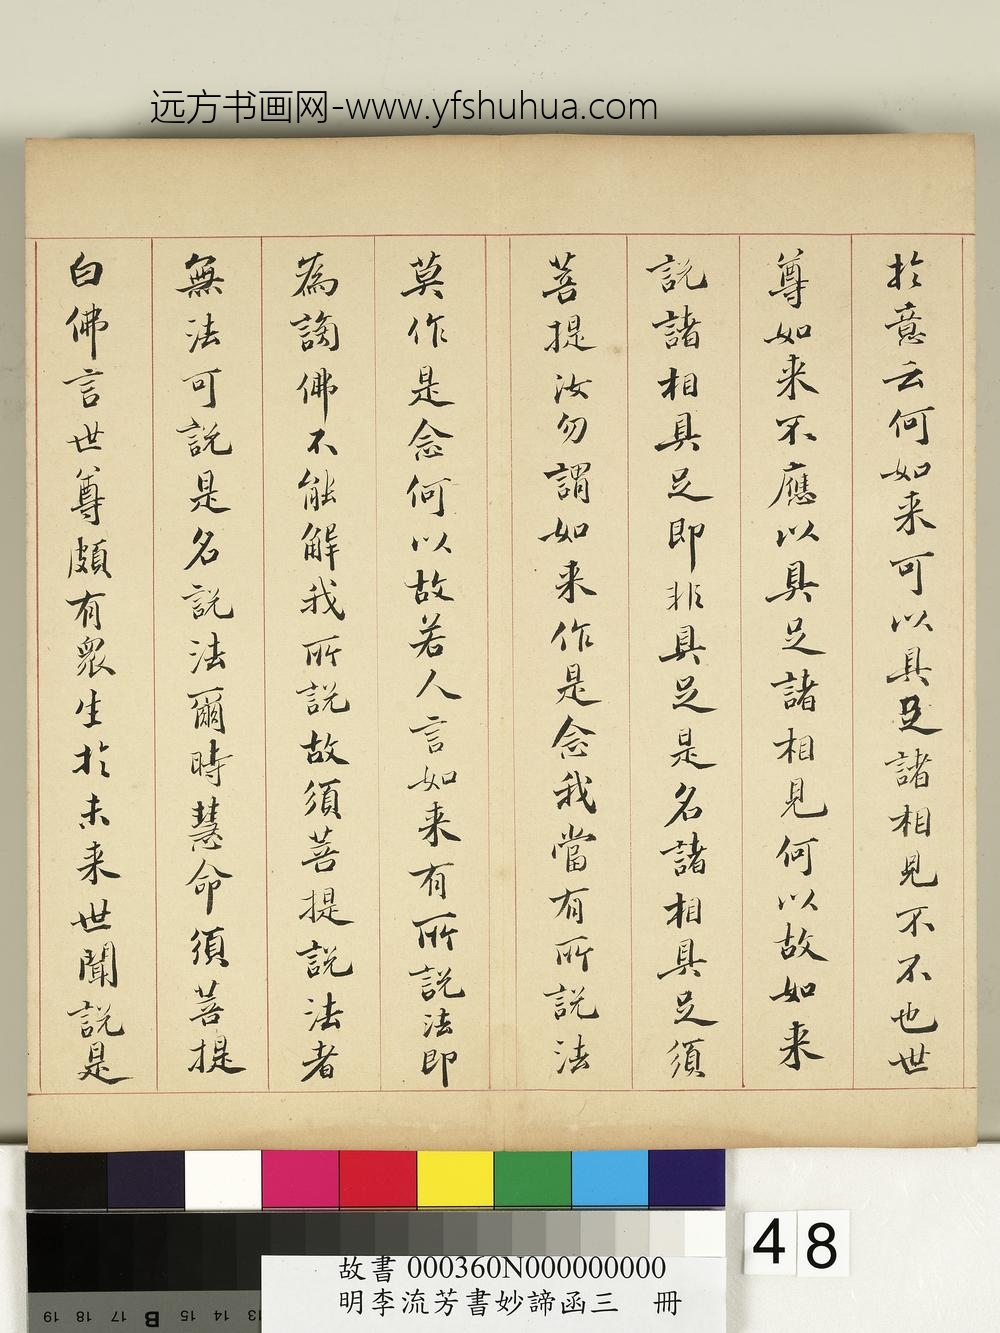 远方书画网-www.yfshuhua.com
於意云何如来可以具足諸相見不不也世
尊如来不應以具足諸相見何以故如来
説諸相具足即非具足是名諸相具足須
菩提汝勿謂如来作是念我當有所説法
莫作是念何以故若人言如来有所説法即
為謗佛不能解我所説故須菩提説法者
無法可説是名説法爾時慧命須菩提
白佛言世尊頗有衆生於未来世聞説是
48
故書 000360N000000000
明李流芳書妙諦函三 冊
19 18 17 B 15 14 13